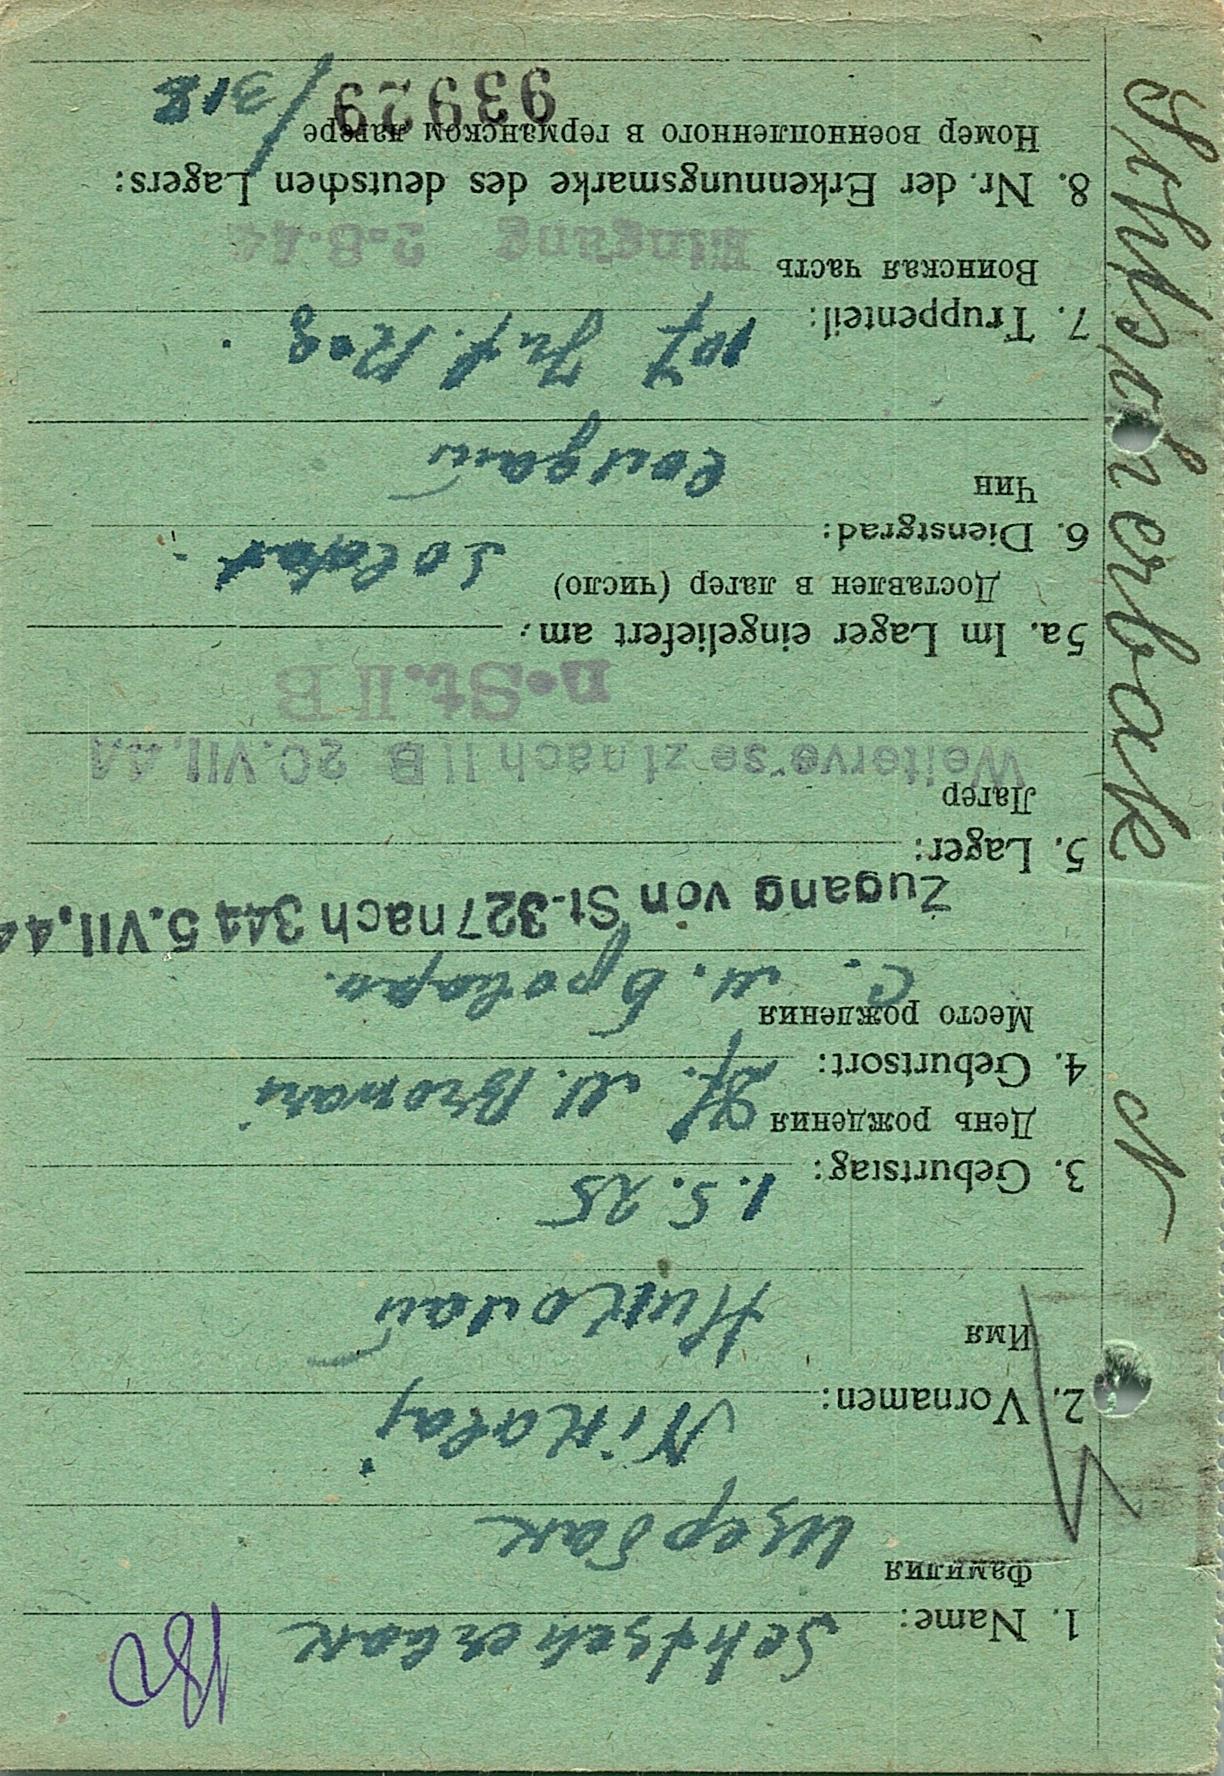 Schtscherbak N
180
1. Name: Schtscherbak
Фамилия Щербак
2. Vornamen: Nikolaj
Имя Николай
3. Geburtstag: 1.5.25
День рождения
4. Geburtsort: M. Browari
Место рождения с. м. Бровари.
Zugang von St-327 nach 344 5.VII.44
5. Lager:
Лагер
Weiterversetzt nach II B 20.VII.44
n. St. II B
5a. Im Lager eingeliefert am:
Доставлен в лагер (число)
6. Dienstgrad: Soldat
Чин солдат
7. Truppenteil: 107 Inf. Reg.
Воинская часть
Eingang 2.8.44
8. Nr. der Erkennungsmarke des deutschen Lagers:
Номер военнопленного в германском лагере
93929/318